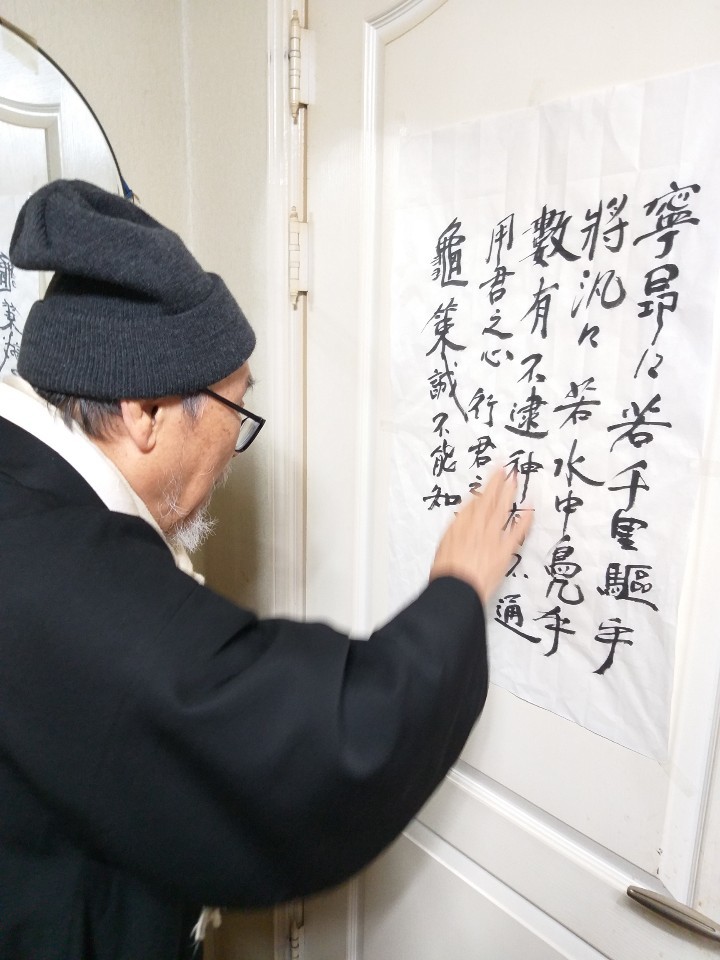 寧昂々若千里驅乎
將汎々若水中鳧乎
數有不逮神有不通
用君之心 行君之
龜策誠不能知